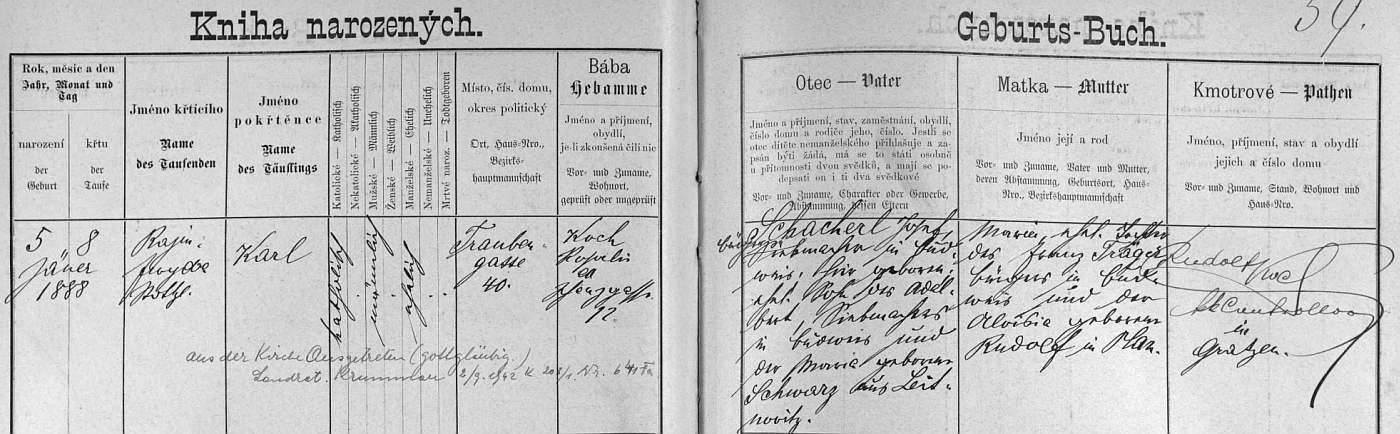 Kniha narozených.
Geburts-Buch.
54.
Rok, měsíc a den
Jahr, Monat und
Tag
narození
der
Geburt
křtu
der
Taufe
Jméno křtícího
Name
des Taufenden
Jméno
pokřtěnce
Name
des Täuflings
Katolické — Katholisch
Nekatolické — Akatholisch
Mužské — Männlich
Ženské — Weiblich
Manželské — Ehelich
Nemanželské — Unehelich
Mrtvě naroz. — Todtgeboren
Místo, čís. domu,
okres politický
Ort, Haus-Nro.,
Bezirks-
hauptmannschaft
Bába
Hebamme
Jméno a příjmení,
obydlí,
je-li zkoušená čili nic
Vor- und Zuname,
Wohnort,
geprüft oder ungeprüft
Otec — Vater
Jméno a příjmení, stav, zaměstnání, obydlí,
číslo domu a rodiče jeho, číslo. Jestli se
otec dítěte nemanželského přihlašuje a za-
psán býti žádá, má se to státi osobně
u přítomnosti dvou svědků, a mají se po-
depsati on i ti dva svědkové
Vor- und Zuname, Charakter oder Gewerbe,
Abstammung, dessen Eltern
Matka — Mutter
Jméno její a rod
Vor- und Zuname, Vater und Mutter,
deren Abstammung, Geburtsort, Haus-
Nro., Bezirkshauptmannschaft
Kmotrové — Pathen
Jméno, příjmení, stav a obydlí
jejich a číslo domu
Vor- und Zuname, Stand, Wohnort und
Haus-Nro.
5 8
Jäner
1888
Karl
katholisch
männlich
ehelich
Trauben-
gasse
40.
Koch
Rosalia
12.
Schacherl Josef,
Siebmacher in Bud-
weis, hier geboren,
ehel. Sohn des Adal-
bert, Siebmachers
in Budweis und
der Maria geborene
Schwarz aus Leit-
nowitz.
Maria, ehel. Tochter
des Franz Träger,
Bürgers in Bud-
weis und der
Aloisia geborene
Rudolf in Plan.
Rudolf
in
Gratzen.
aus der Kirche Ausgetreten (gottgläubig.)
Landrat. Krummau 2/9. 1942